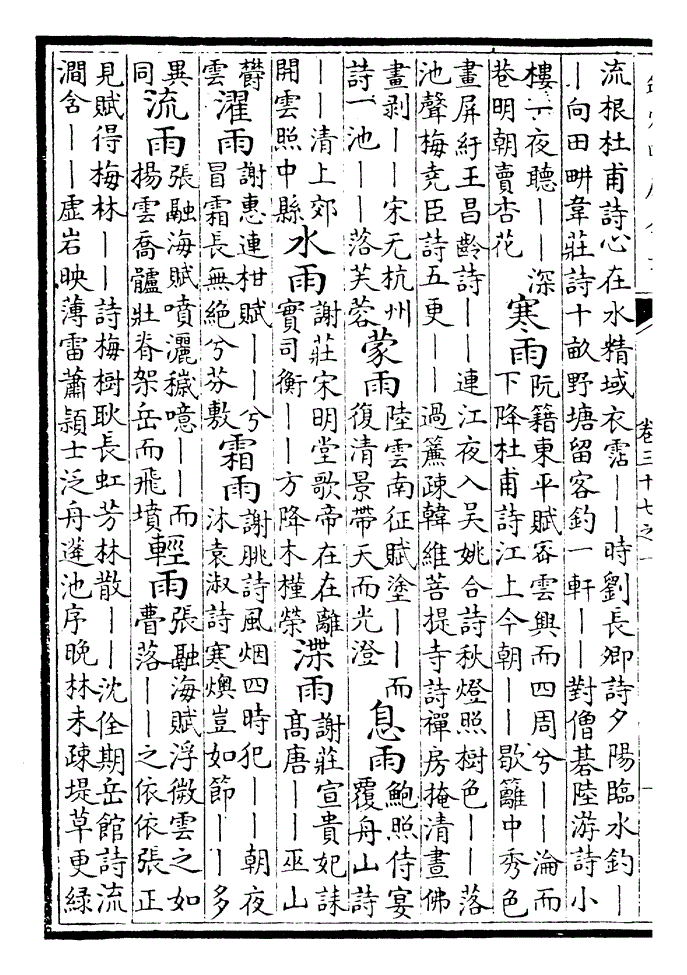 卷三十七之一
流根杜甫詩心在水精域衣霑｜｜時劉長卿詩夕陽臨水釣｜
｜向田畊韋莊詩十畝野塘留客釣一軒｜｜對僧碁陸游詩小
樓一夜聽｜｜深
巷明朝賣杏花
寒雨
阮籍東平賦宻雲興而四周兮｜｜淪而
下降杜甫詩江上今朝｜｜歇籬中秀色
畫屏紆王昌齡詩｜｜連江夜入吳姚合詩秋燈照樹色｜｜落
池聲梅堯臣詩五更｜｜過簾疎韓維菩提寺詩禪房掩清晝佛
畫剥｜｜宋无杭州
詩一池｜｜落芙蓉
蒙雨
陸雲南征賦塗｜｜而
復清景帶天而光澄
息雨
鮑照侍宴
覆舟山詩
｜｜清上郊
開雲照中縣
水雨
謝莊宋明堂歌帝在在離
實司衡｜｜方降木槿榮
渫雨
謝莊宣貴妃誄
髙唐｜｜巫山
欝
雲
濯雨
謝惠連柑賦｜｜兮
冒霜長無絶兮芬敷
霜雨
謝朓詩風烟四時犯｜｜朝夜
沐袁淑詩寒燠豈如節｜｜多
異
同
流雨
張融海賦噴灑穢噫｜｜而
揚雲喬髗壯脊架岳而飛墳
輕雨
張融海賦浮微雲之如
瞢落｜｜之依依張正
見賦得梅林｜｜詩梅樹耿長虹芳林散｜｜沈佺期岳館詩流
澗含｜｜虚岩映薄雷蕭穎士泛舟蓮池序晚林未疎堤草更緑